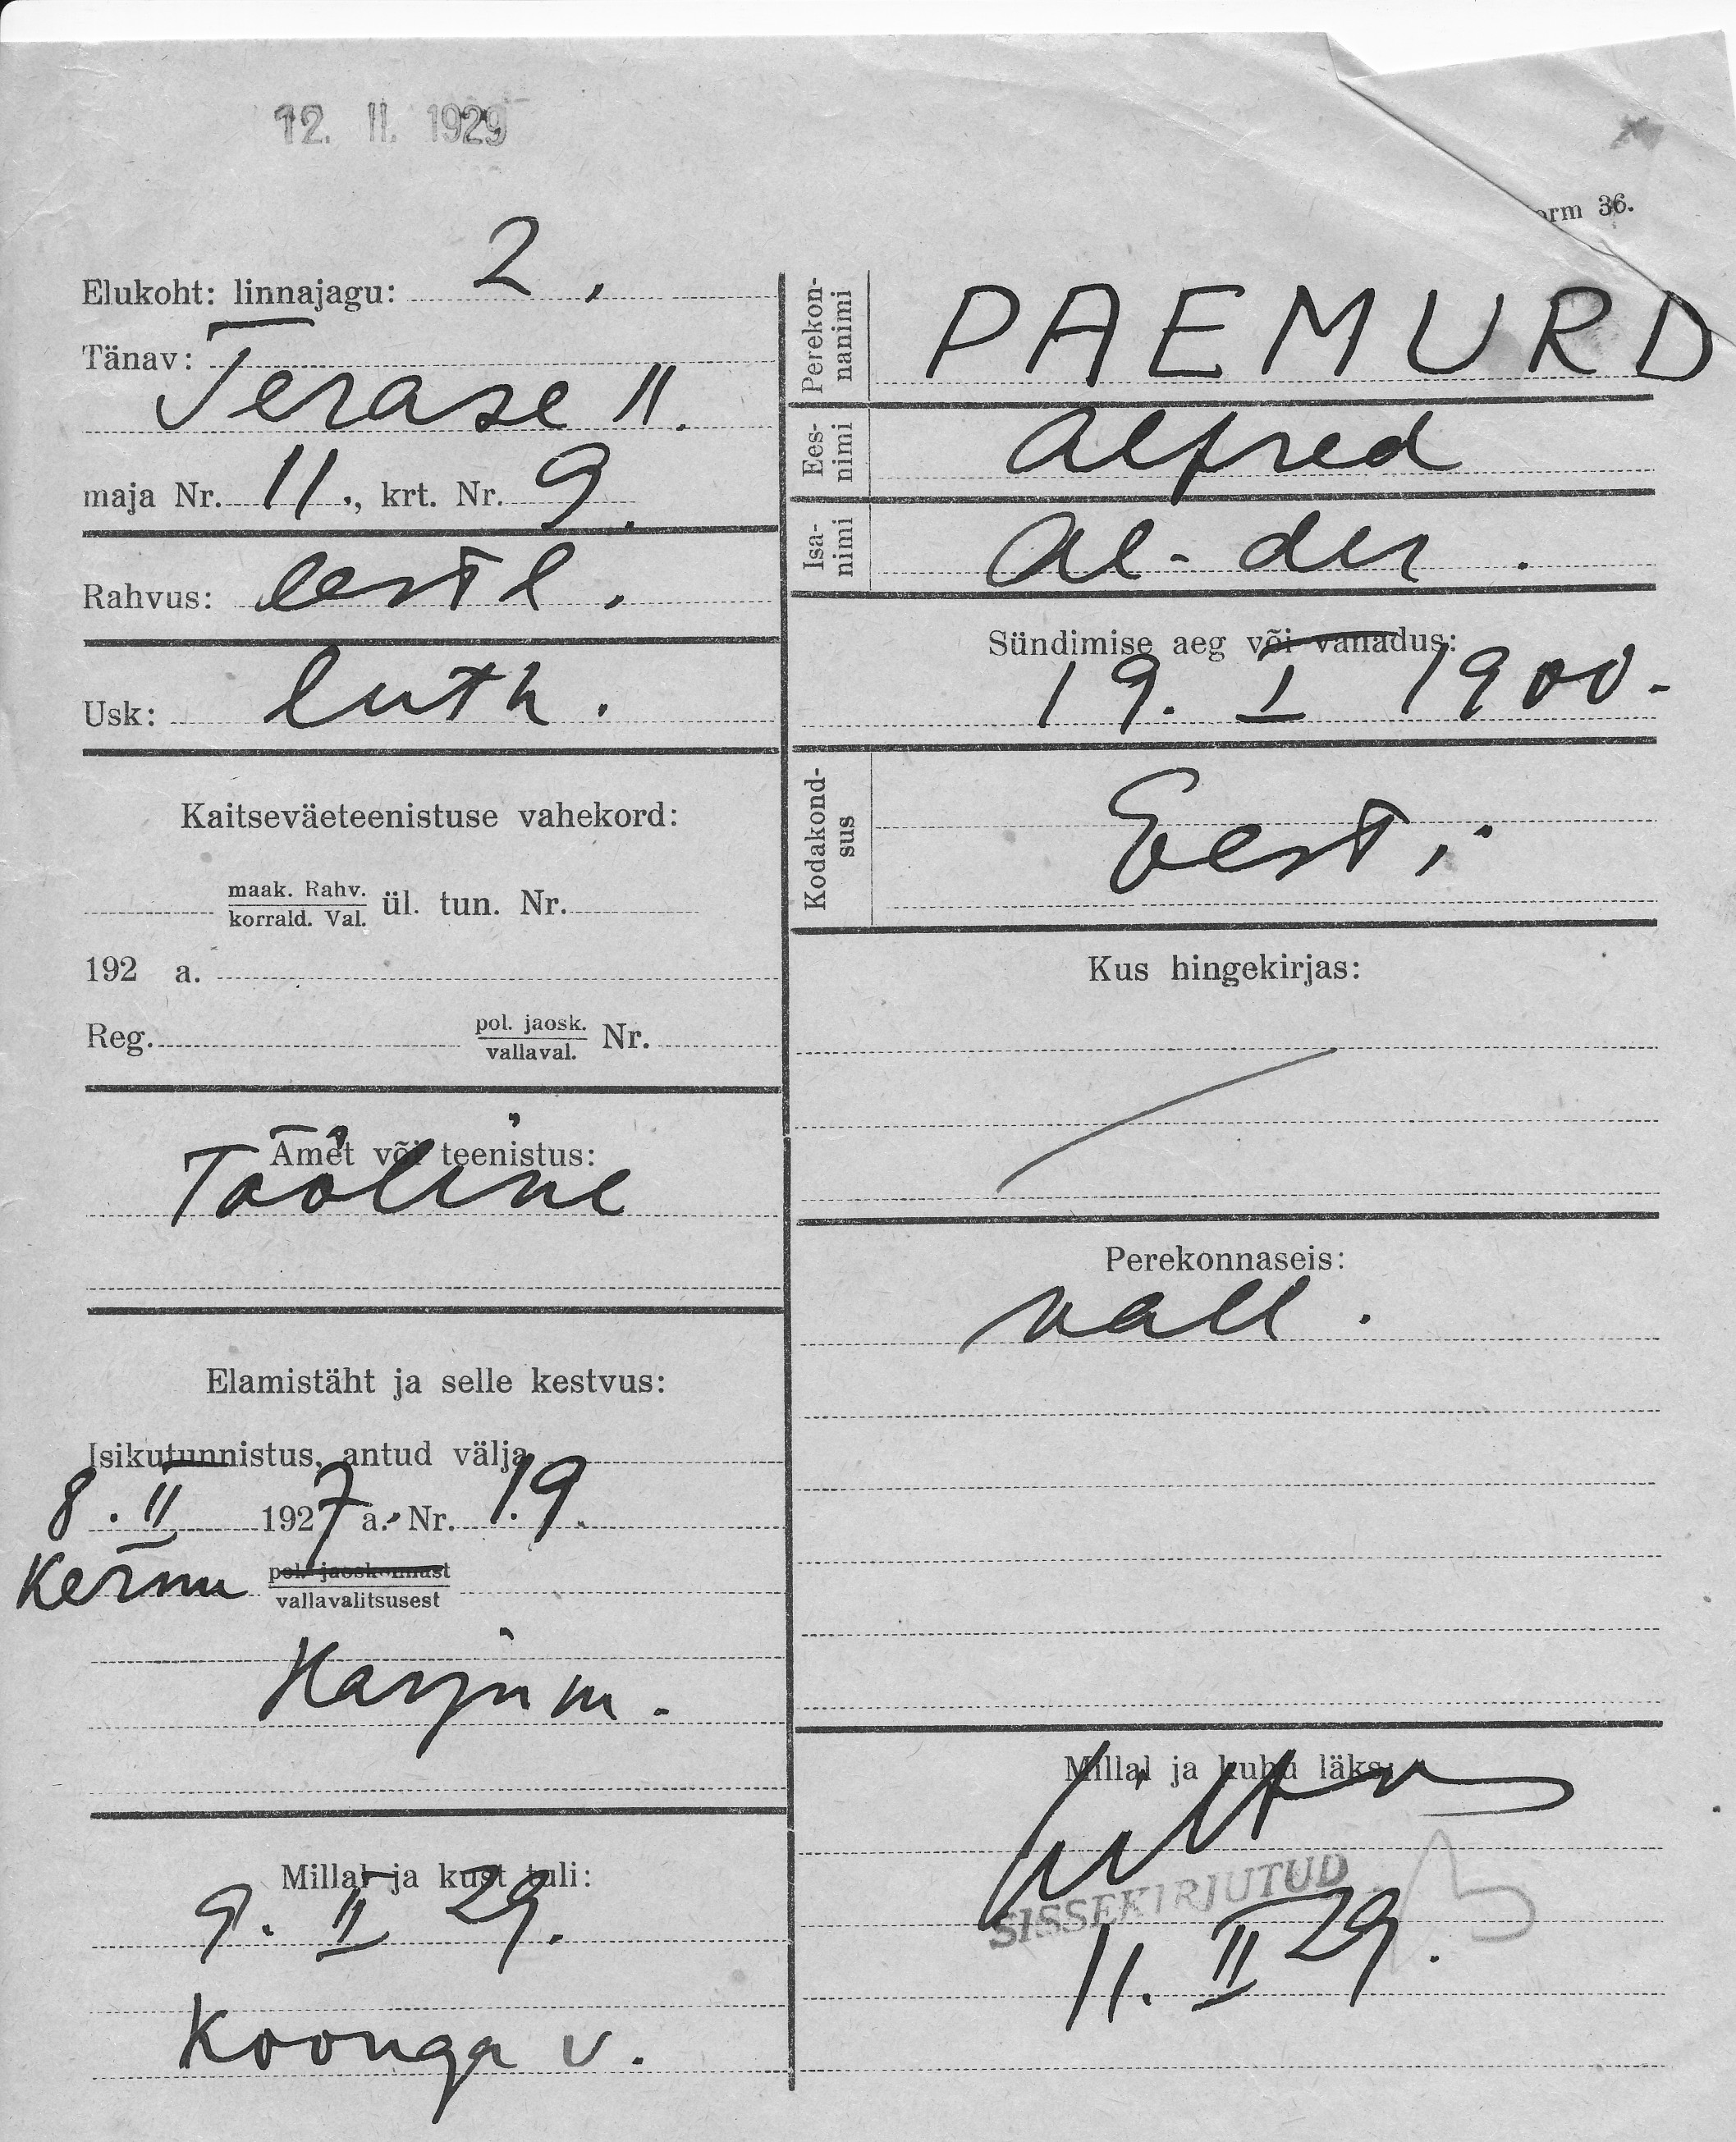 12. II. 1929
orm 36.
Elukoht: linnajagu: 2.
Tänav:
Terase II.
maja Nr. 11., krt. Nr. 9.
Rahvus: eestl.
Usk: luth.
Kaitseväeteenistuse vahekord:
maak. Rahv.
korrald. Val. ül. tun. Nr.
192 a.
Reg. pol. jaosk.
vallaval. Nr.
Amet või teenistus:
Tööline
Elamistäht ja selle kestvus:
Isikutunnistus, antud välja
8. II 1927 a. Nr. 19.
Kernu pol. jaoskonnast
vallavalitsusest
Harju m.
Millal ja kust tuli:
9. II 29.
Koonga v.
Perekon-
nanimi
PAEMURD
Ees-
nimi
Alfred
Isa-
nimi
Al-der.
Sündimise aeg või vanadus:
19. I 1900.
Kodakond-
sus
Eesti
Kus hingekirjas:
Perekonnaseis:
vall.
Millal ja kuhu läks:
SISSEKIRJUTUD
11. II 29.